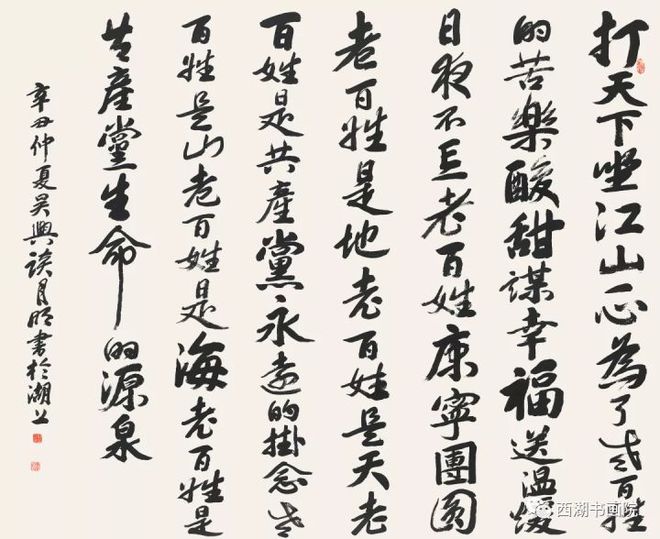 打天下坐江山一心為了老百姓
的苦樂酸甜謀幸福送溫暖
日夜不忘老百姓康寧團圓
老百姓是地老百姓是天老
百姓是共產黨永遠的掛念老
百姓是山老百姓是海老百姓是
共產黨生命的源泉
辛丑仲夏吳興談月明書於湖上
西湖书画院